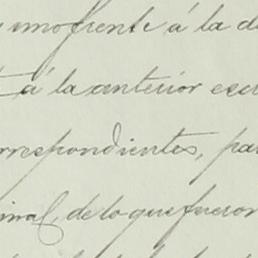 y uno frente á la d
á la anterior escr
rrespondientes, par
inal, de lo que fueron